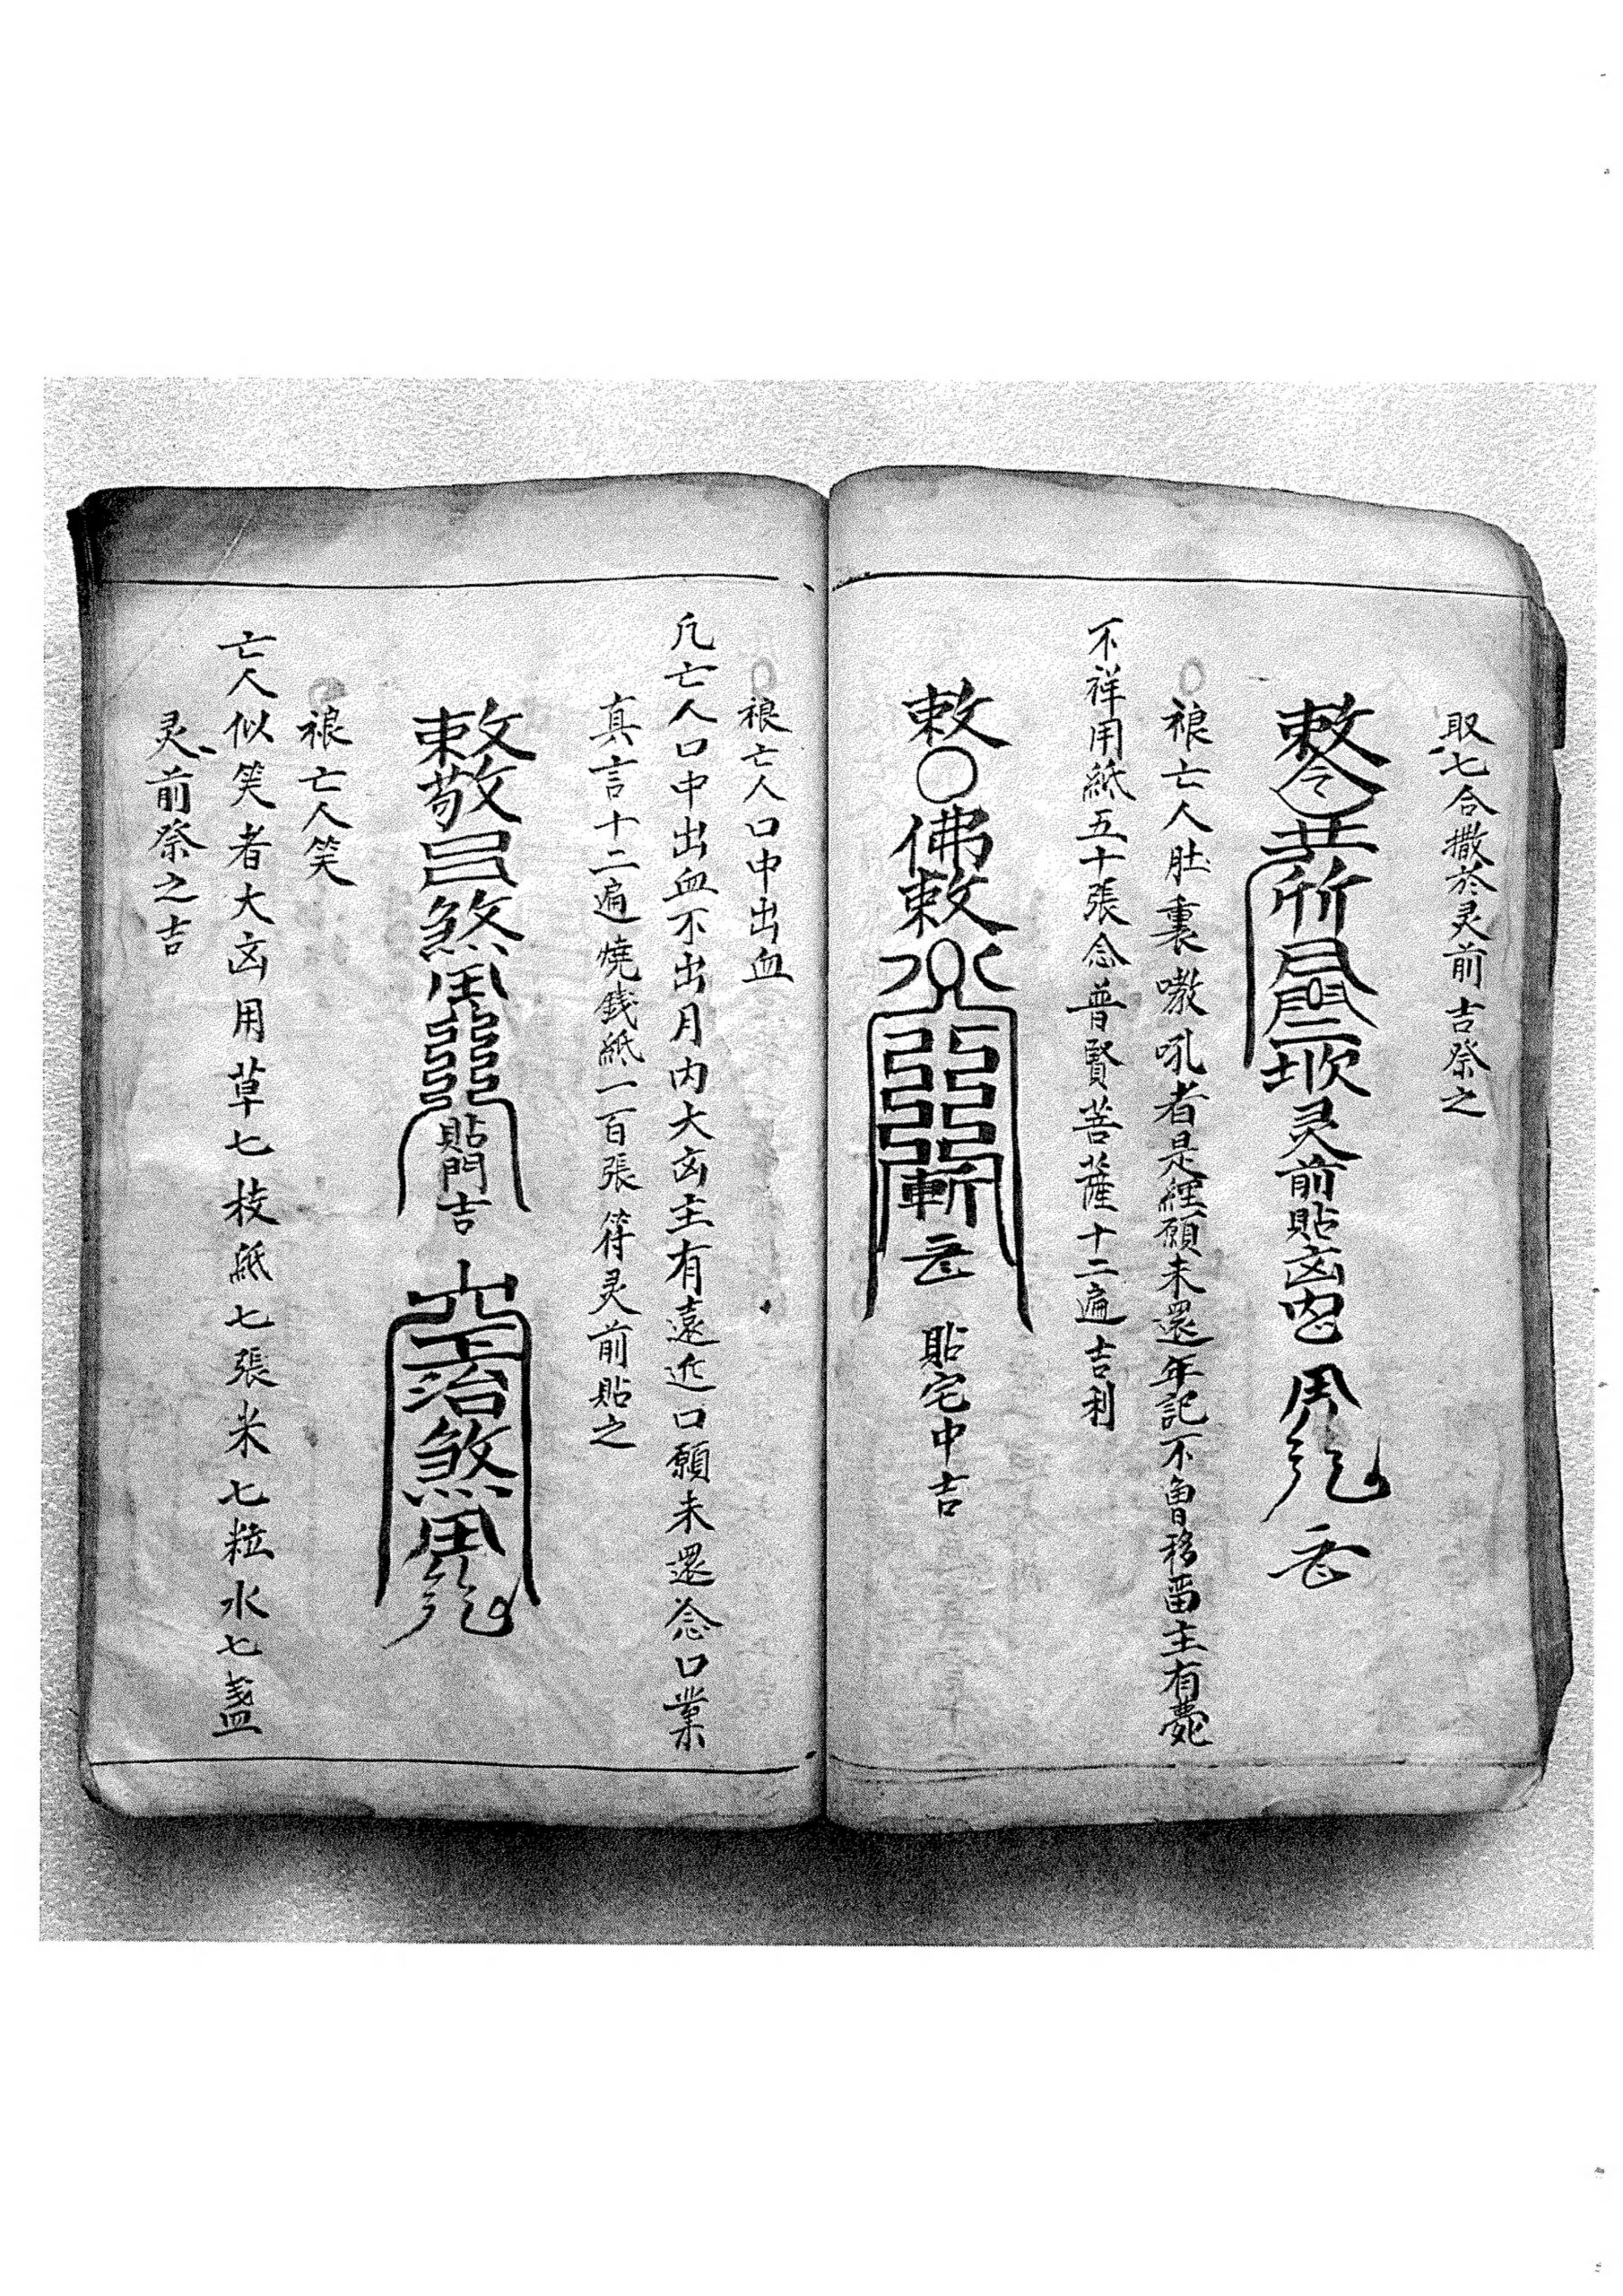 取七合撒於灵前吉祭之
敕令 灵前貼凶
○䘞亡人肚裏嗷吼者是經願未還年記不魯移畄主有薨
不祥用紙五十張念普賢菩薩十二遍吉利
敕○佛敕 斬 貼宅中吉
○䘞亡人口中出血
凢亡人口中出血不出月内大凶主有遠近口願未還念口業
真言十二遍燒錢紙一百張符灵前貼之
敕 煞 貼門吉 治煞
䘞亡人笑
亡人似笑者大凶用草七枝紙七張米七粒水七盞
灵前祭之吉